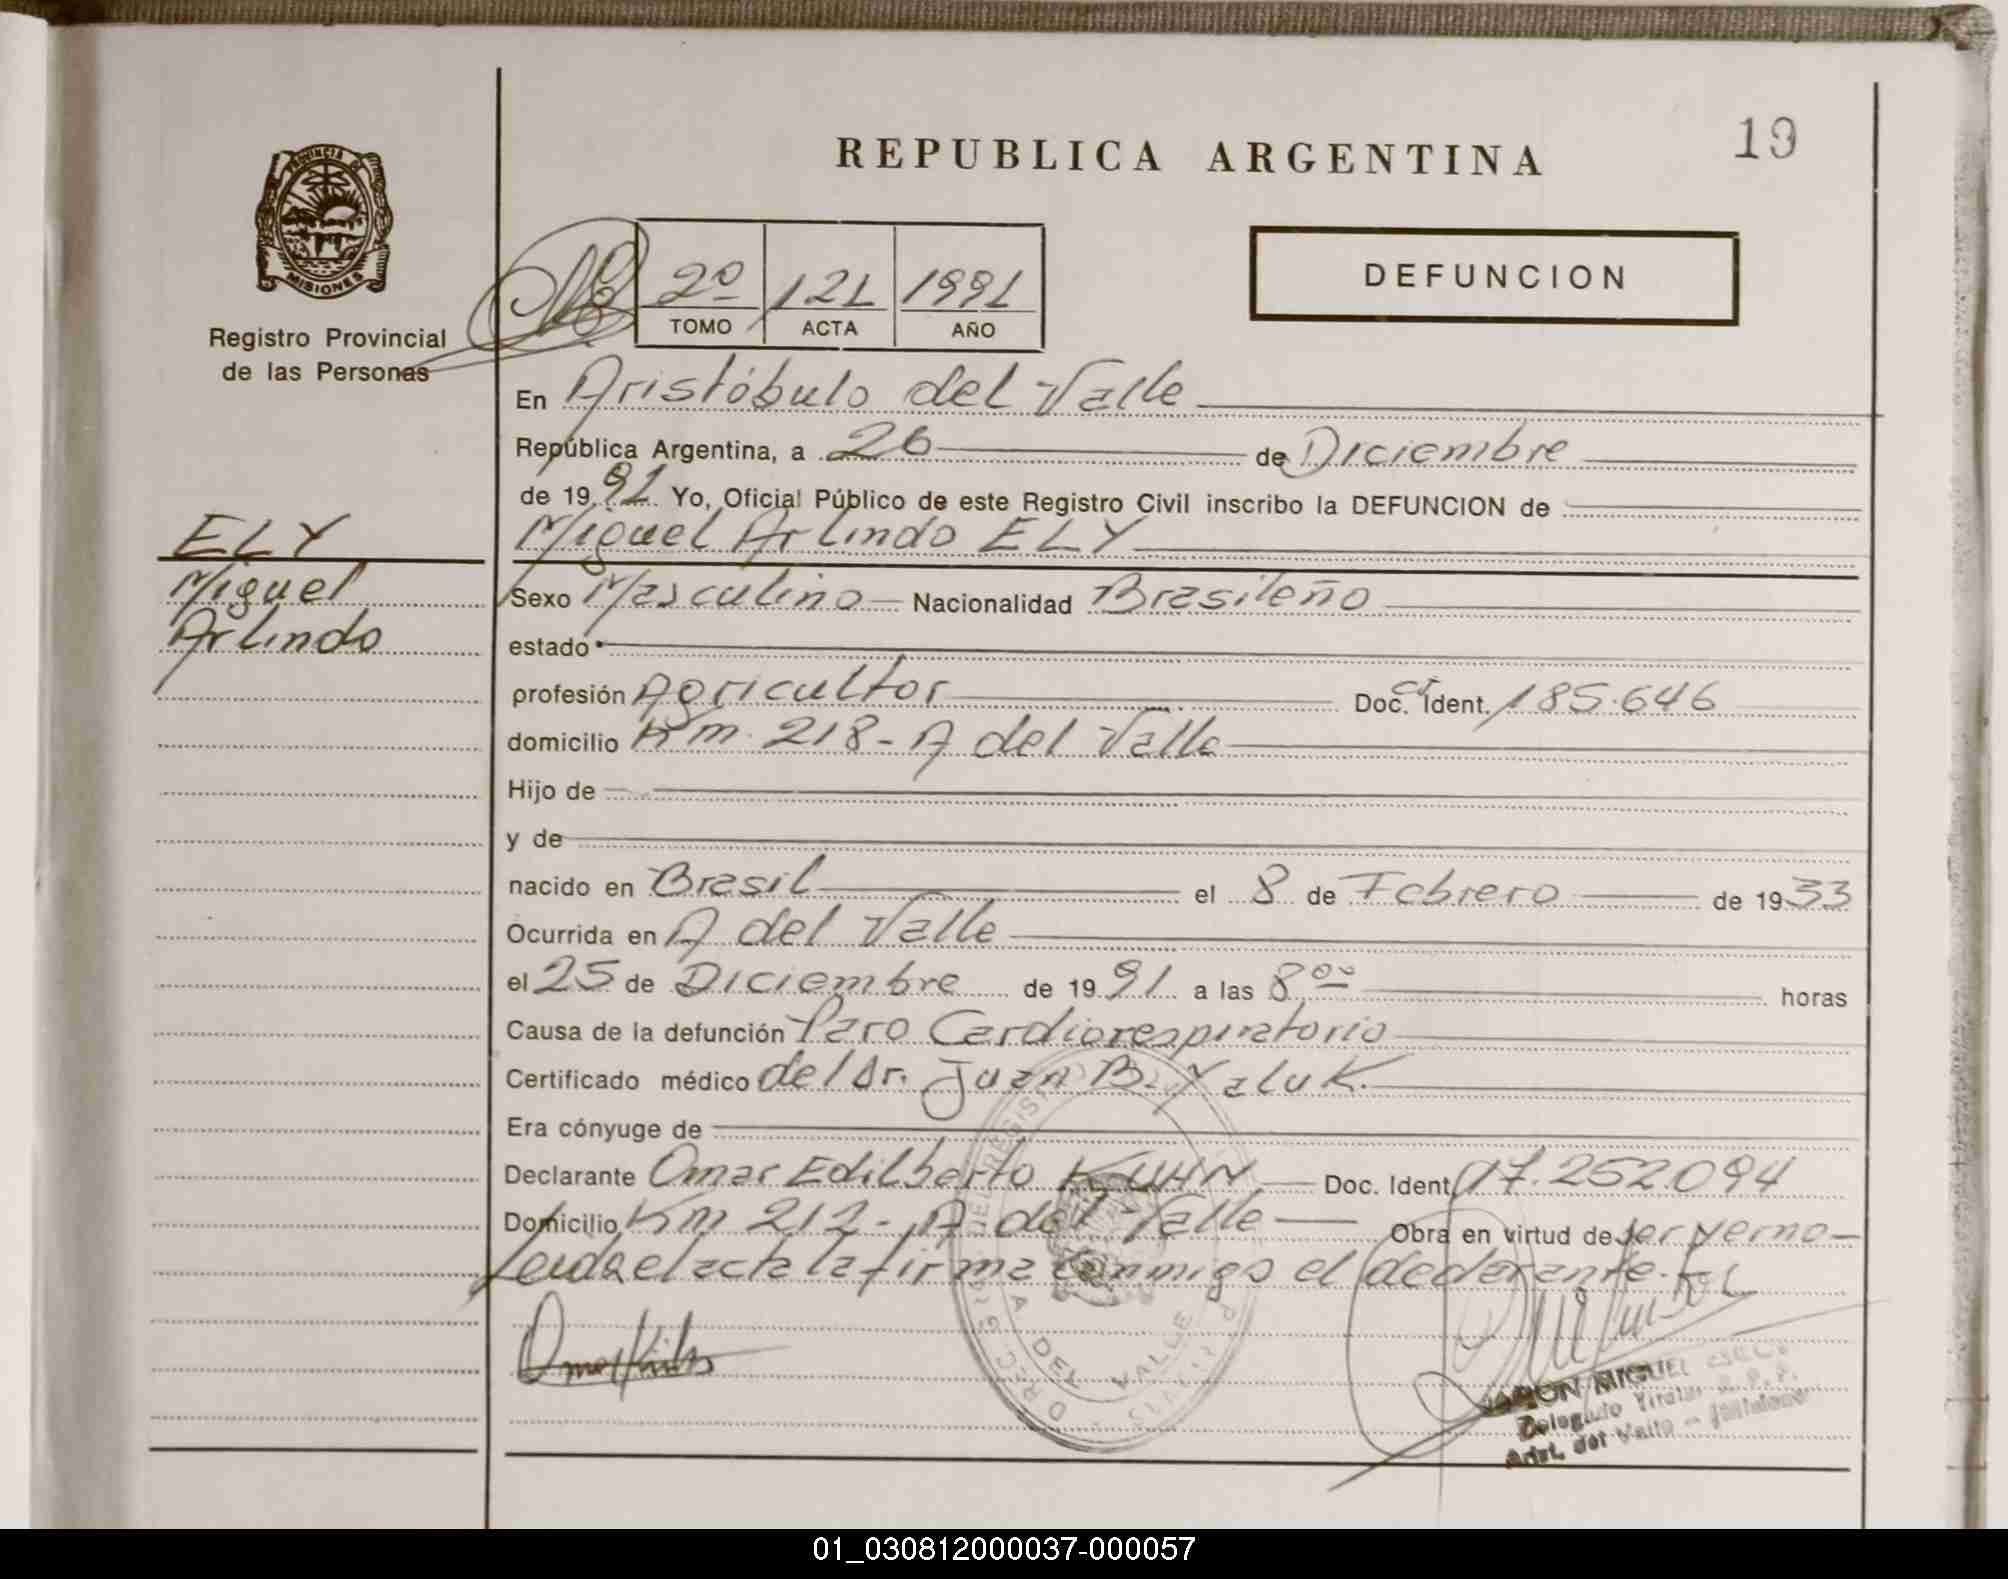 19
REPUBLICA ARGENTINA
PROVINCIA DE
MISIONES
Registro Provincial
de las Personas
2º 121 1991
TOMO ACTA AÑO
DEFUNCION
En Aristóbulo del Valle
República Argentina, a 26 de Diciembre
de 1991 Yo, Oficial Público de este Registro Civil inscribo la DEFUNCION de
ELY
Miguel Arlindo ELY
Miguel
Arlindo
Sexo Masculino Nacionalidad Brasileño
estado
profesión Agricultor Doc. CI Ident. 185.646
domicilio Km. 218 - A del Valle
Hijo de
y de
nacido en Brasil el 8 de Febrero de 1933
Ocurrida en A del Valle
el 25 de Diciembre de 1991 a las 8 00 horas
Causa de la defunción Paro Cardiorespiratorio
Certificado médico del Dr. Juan B. Yaluk.
Era cónyuge de
Declarante Omar Edilberto KUHN Doc. Ident. 17.252.094
Domicilio Km 212 - A del Valle Obra en virtud de ser yerno -
Leida el acta la firma conmigo el declarante.
DEL VALLE
MIGUEL
Delegado Titular R. P. P.
Arist. del Valle - Misiones
01_030812000037-000057